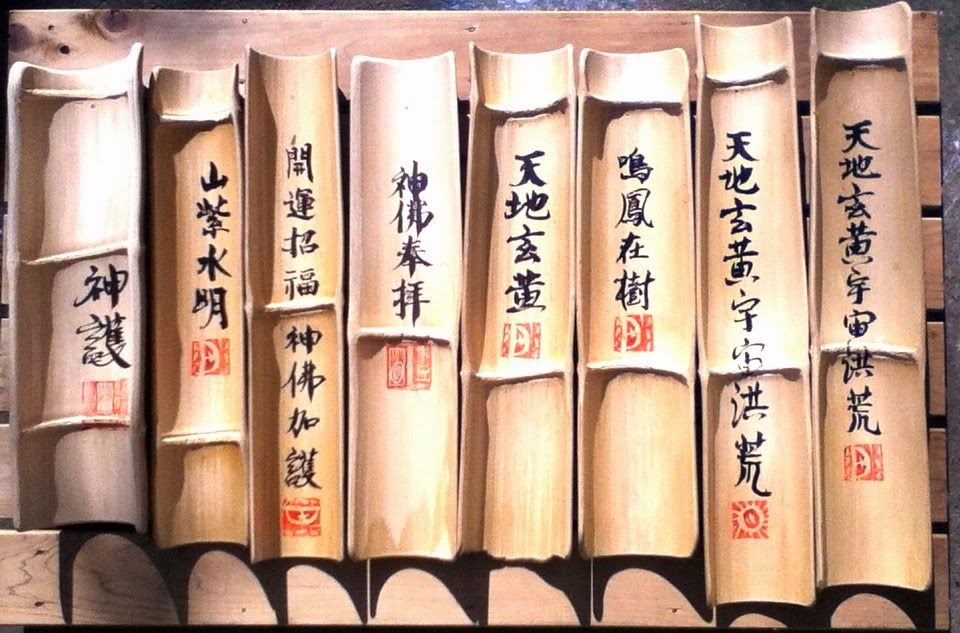 天地玄黄宇宙洪荒
天地玄黄宇宙洪荒
鳴鳳在樹
天地玄黄
神佛奉拝
開運招福神佛加護
山紫水明
神護